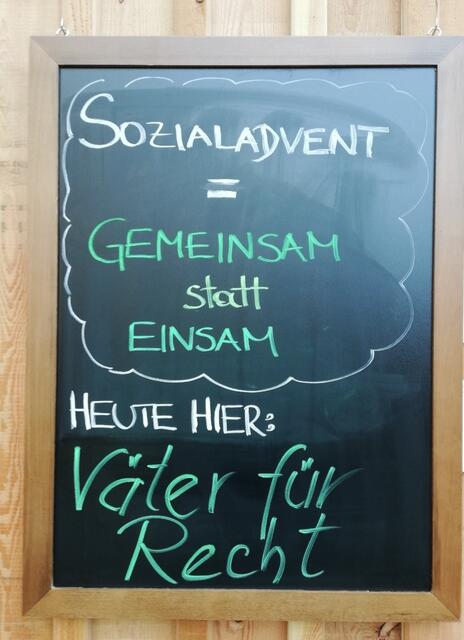 SOZIALADVENT
=
GEMEINSAM
statt
EINSAM
HEUTE HIER:
Väter für
Recht